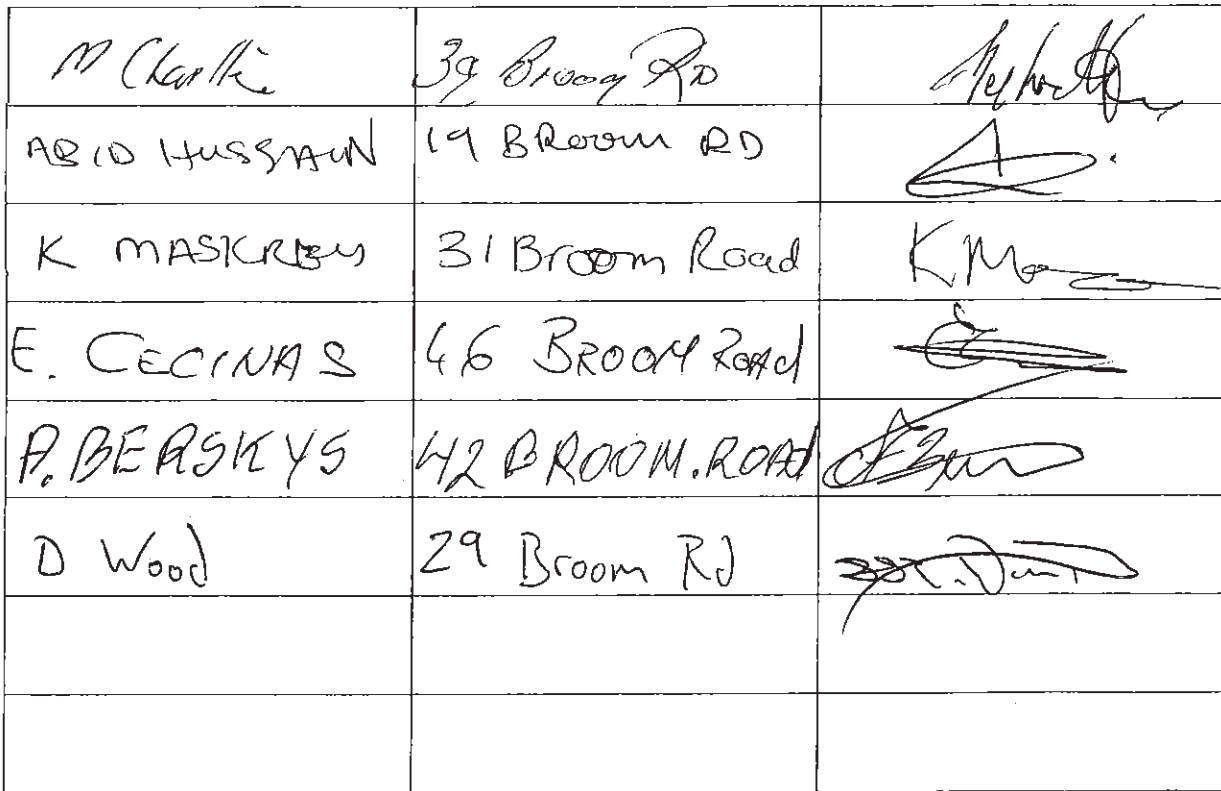 M 39 Broom RD
ABID HUSSAIN 19 BROOM RD
K MASKREY 31 Broom Road K
E. CECINAS 46 BROOM Road
P. BERSKYS 42 BROOM. ROAD
D Wood 29 Broom Rd